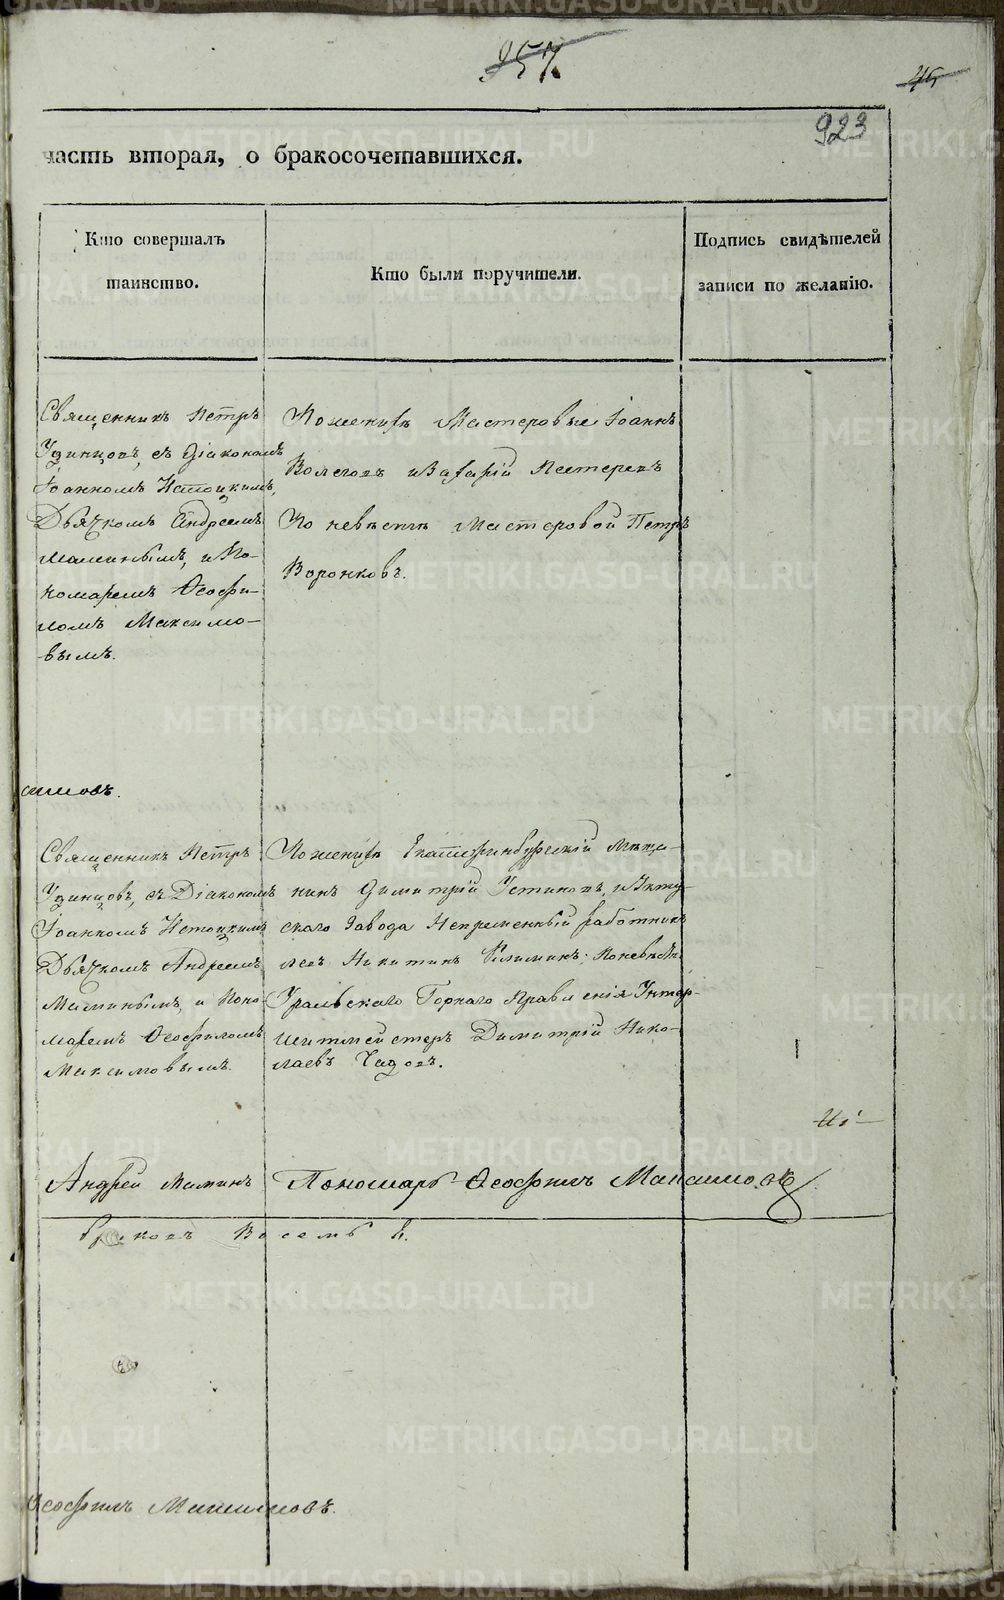 957
45
923
часть вторая, о бракосочетавшихся.
Кто совершалъ
таинство.
Кто были поручители.
Подпись свидѣтелей
записи по желанію.
Священникъ Петръ
Удинцовъ, съ Діакономъ
Іоанномъ Истоцкимъ,
Дьячкомъ Андреемъ
Маминымъ, и По-
номаремъ Ѳеофи-
ломъ Максимо-
-вымъ.
По женихѣ Мастеровые Іоаннъ
Волеговъ и Захарій Пестеревъ
По невѣстѣ Мастеровой Петръ
Воронковъ.
Священникъ Петръ
Удинцовъ, съ Діакономъ
Іоанномъ Истоцкимъ
Дьячкомъ Андреемъ
Маминымъ, и Поно-
маремъ Ѳеофиломъ
Максимовымъ.
По женихѣ Екатеринбургскій Мѣща-
нинъ Димитрій Устиновъ, и Укту-
скаго Завода Непременный работникъ
Никитинъ По невѣстѣ
Уральскаго Горнаго Правленія Унтер-
шихтмейстеръ Димитрій Нико-
лаевъ
Андрей Маминъ Пономарь Ѳеофилъ Максимовъ
браковъ Восемь 8.
Ѳеофилъ Максимовъ.
METRIKI.GASO-URAL.RU